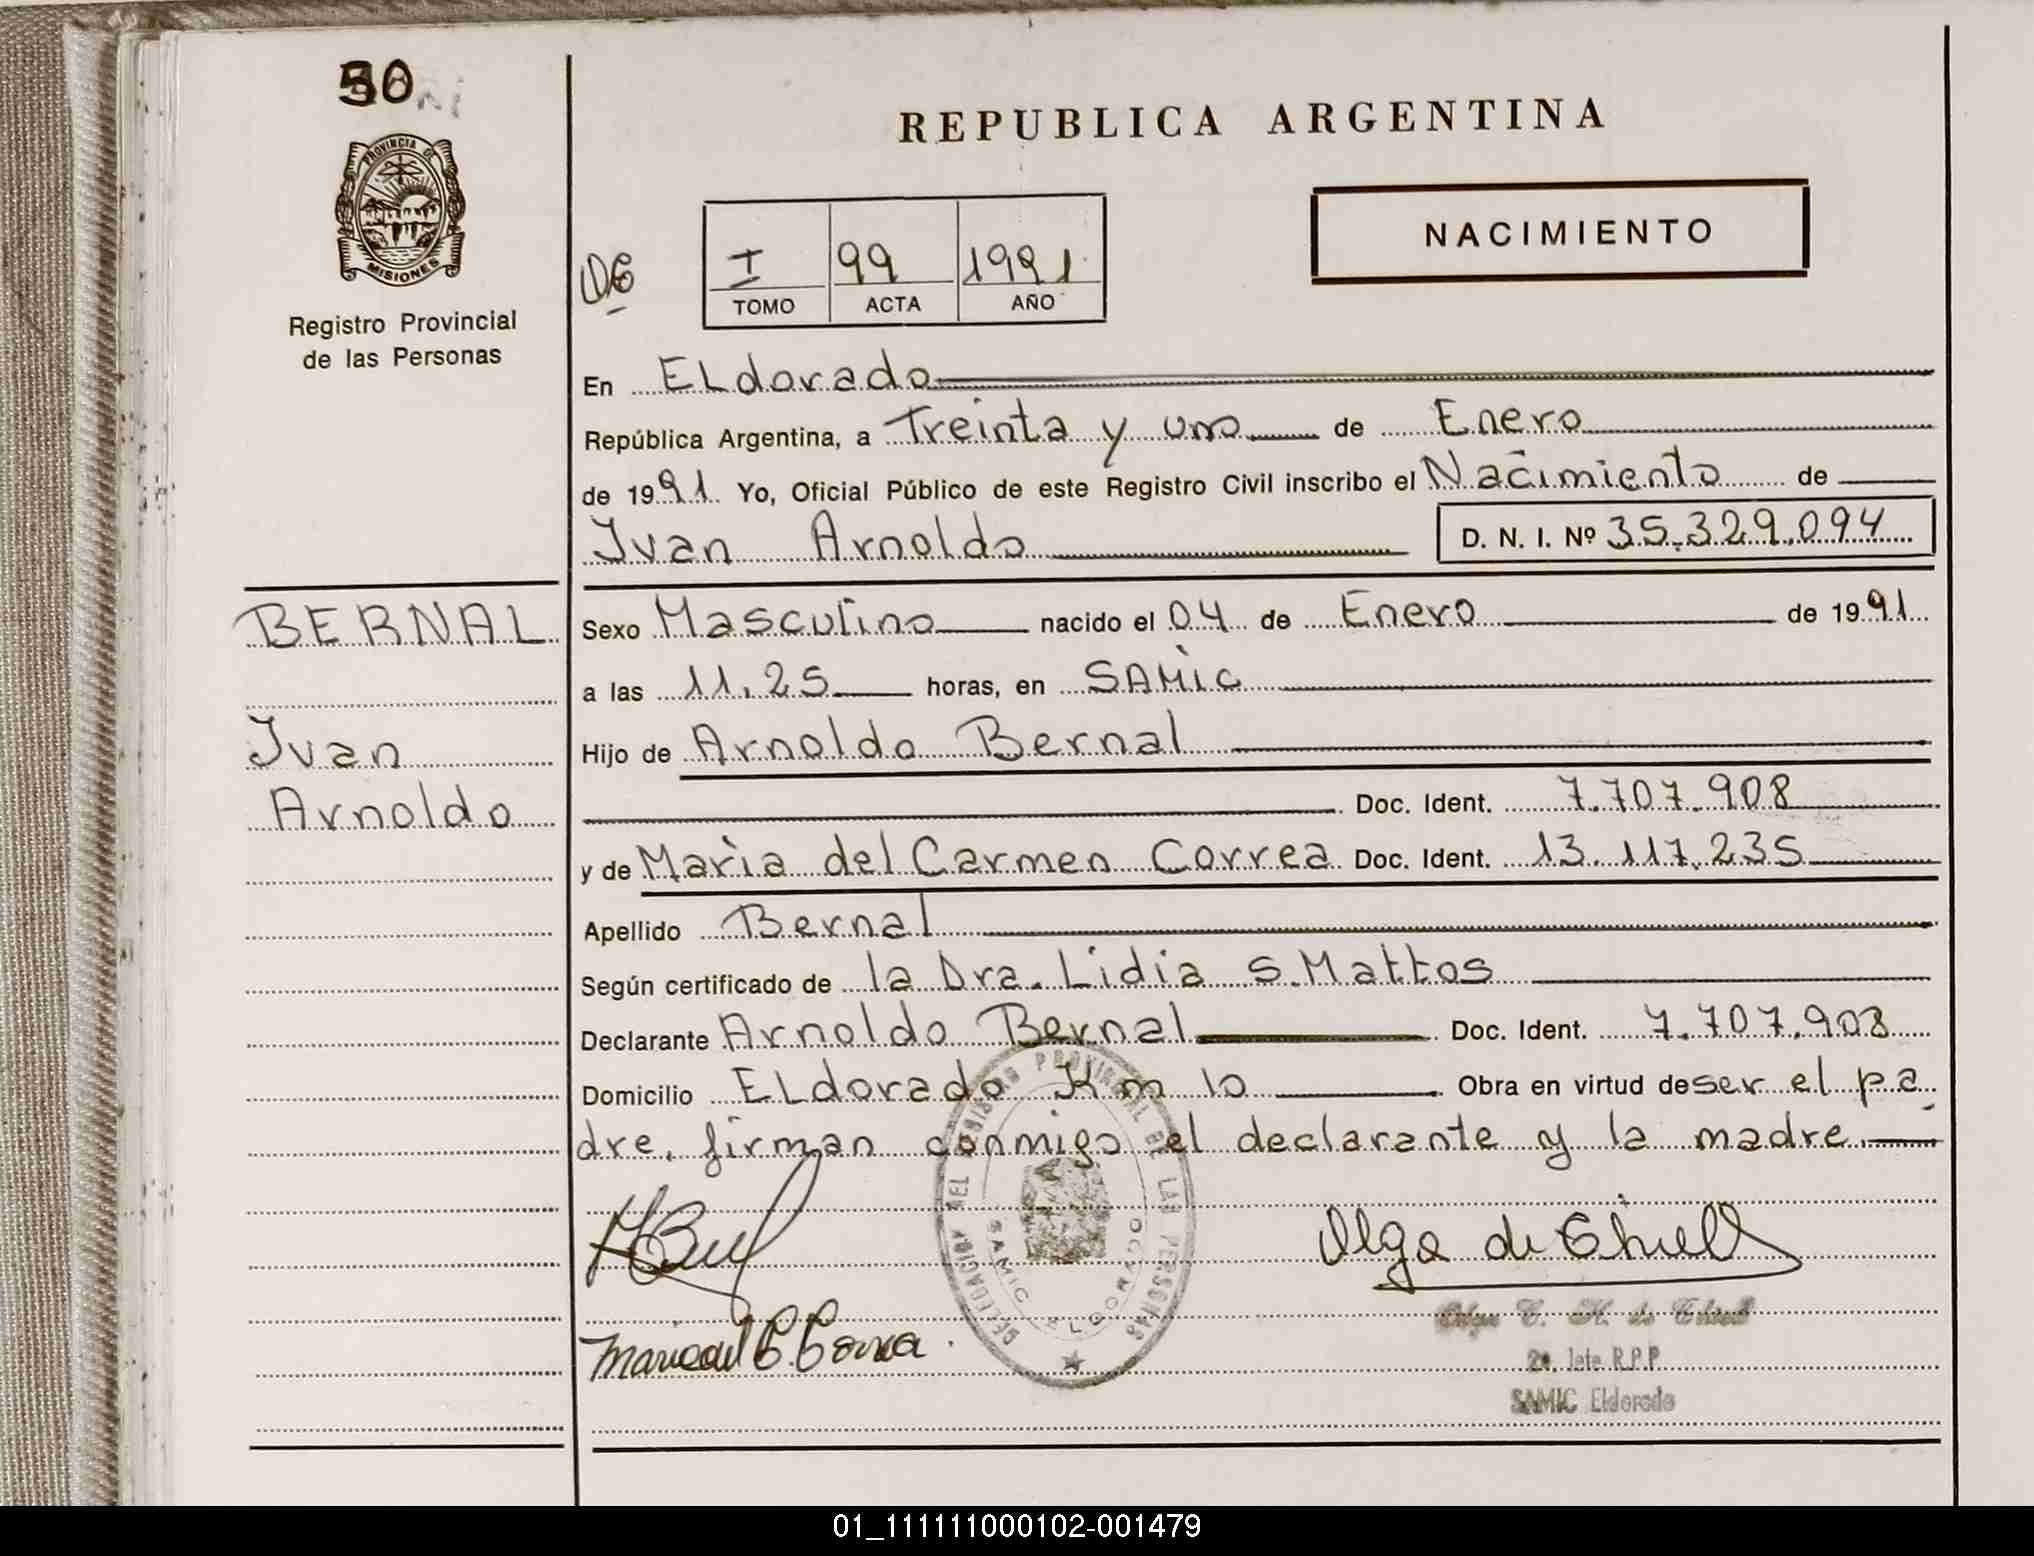 50
PROVINCIA DE
MISIONES
Registro Provincial
de las Personas
REPUBLICA ARGENTINA
NACIMIENTO
I 99 1991
TOMO ACTA AÑO
En ELdorado
República Argentina, a Treinta y uno de Enero
de 1991 Yo, Oficial Público de este Registro Civil inscribo el Nacimiento de
Ivan Arnoldo D. N. I. Nº 35.329.094
BERNAL
Ivan
Arnoldo
Sexo Masculino nacido el 04 de Enero de 1991
a las 11.25 horas, en SAMic
Hijo de Arnoldo Bernal
Doc. Ident. 7.707.908
y de Maria del Carmen Correa Doc. Ident. 13.117.235
Apellido Bernal
Según certificado de la Dra. Lidia S. Mattos
Declarante Arnoldo Bernal Doc. Ident. 7.707.908
Domicilio ELdorado Km 10 Obra en virtud de ser el pa
dre, firman conmigo el declarante y la madre.
DELEGACION DEL REGISTRO PROVINCIAL DE LAS PERSONAS
SAMIC ELDORADO
Olga de
Maria del C. Correa
R.P.P
SAMIC Eldorado
01_111111000102-001479